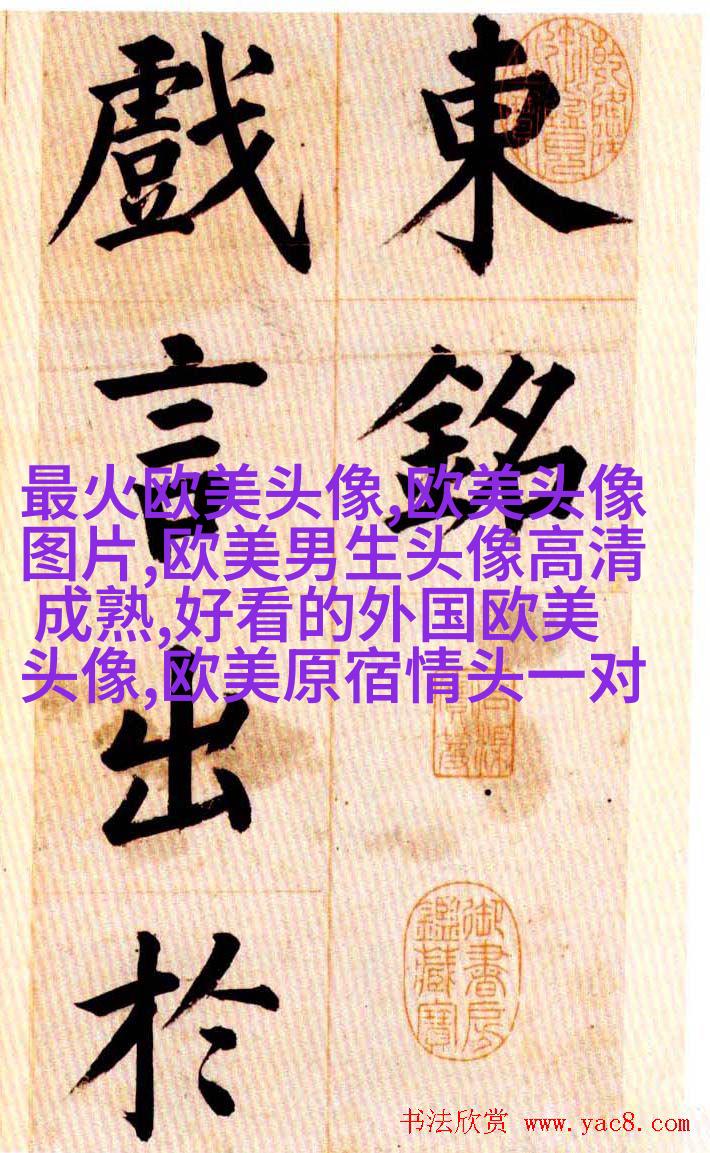 東銘
戲言出於
最火欧美头像,欧美头像
图片,欧美男生头像高清
成熟,好看的外国欧美
头像,欧美原宿情头一对
御書房
鑑藏寶
书法欣赏 www.yac8.com